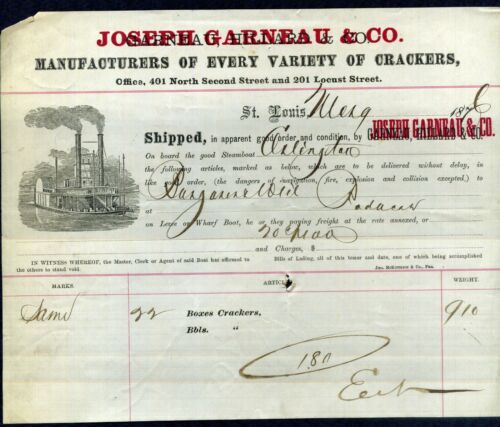 JOSEPH GARNEAU & CO.
GARNEAU, HILLARD & CO.
MANUFACTURERS OF EVERY VARIETY OF CRACKERS,
Office, 401 North Second Street and 201 Locust Street.
St. Louis, 187
JOSEPH GARNEAU & CO.
Shipped, in apparent good order and condition, by GARNEAU, HILLARD & CO.
On board the good Steamboat Arlington
the following articles, marked as below, which are to be delivered without delay, in
like good order, (the dangers of navigation, fire, explosion and collision excepted,) to
at
on Levee or Wharf Boat, he or they paying freight at the rate annexed, or
and Charges, $
IN WITNESS WHEREOF, the Master, Clerk or Agent of said Boat has affirmed to Bills of Lading, all of this tenor and date, one of which being accomplished
the others to stand void.
MARKS. ARTICLES. WEIGHT.
Same 22 Boxes Crackers, 910
Bbls. "
180